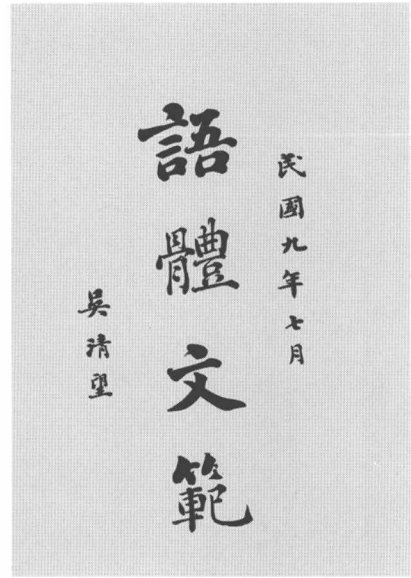 民國九年七月
語體文範
吳清望